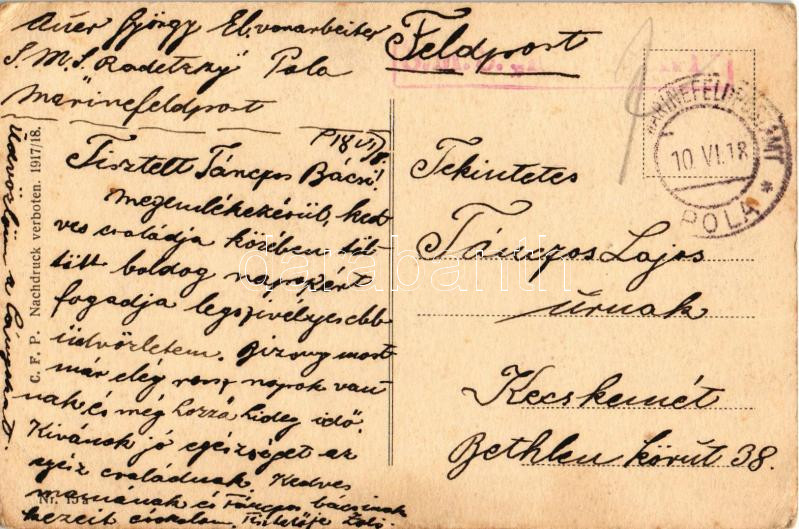 Auer György El. vorarbeiter
S.M.S. Radetzky Pola
Marinefeldpost
Feldpost
MARINEFELDPOSTAMT
10 VI.18
POLA *
P 18 VI/8.
Tisztelt Tánczos Bácsi!
Megemlékezésül, ked
ves családja körében töl
tött boldog napokért
fogadja legszívélyesebb
üdvözletem. Bizony most
már elég rossz napok van
nak és még hozzá hideg idő.
Kivánok jó egészséget az
egész családnak. Kedves
mamának és Tánczos bácsinak
kezeit csókolom. Tisztelője
Üdvözlöm a lányokat.
Tekintetes
Tánczos Lajos
úrnak
Kecskemét
Bethlen körút 38.
C. F. P. Nachdruck verboten. 1917/18.
darabanth